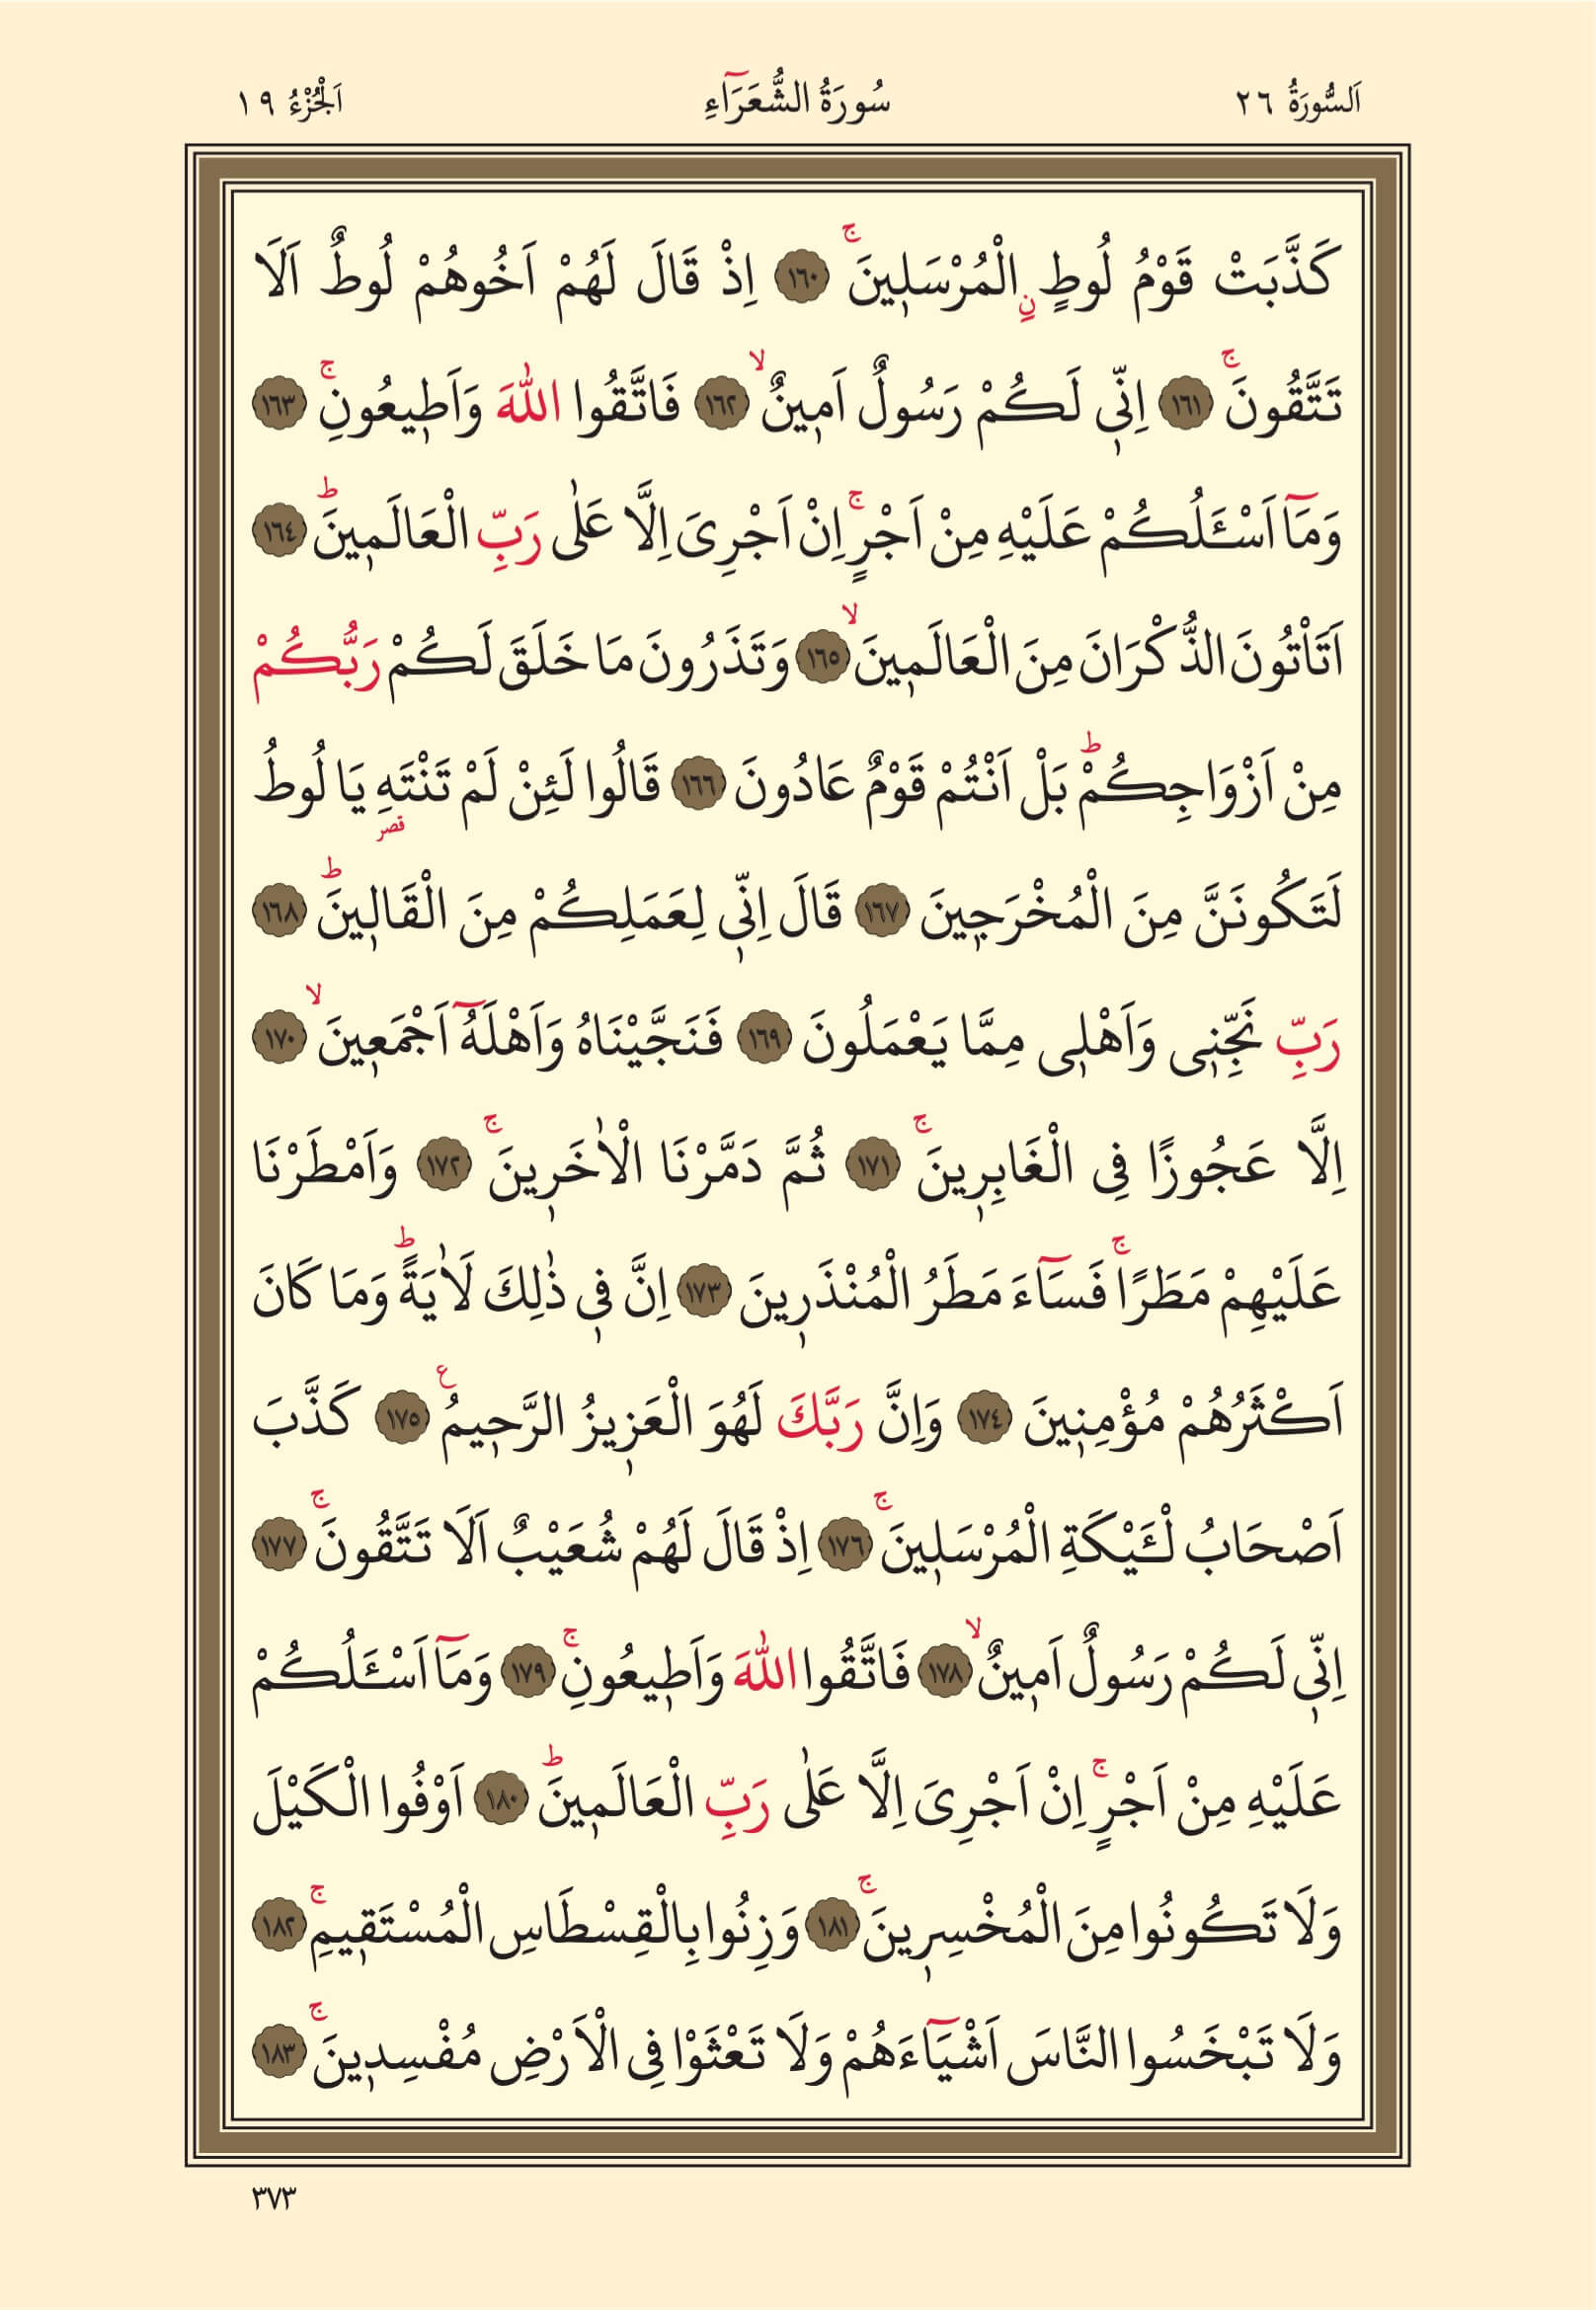 اَلسُّورَةُ ٢٦ سُورَةُ الشُّعَرَٓاءِ اَلْجُزْءُ ١٩
كَذَّبَتْ قَوْمُ لُوطٍۨ الْمُرْسَل۪ينَۚ ﴿١٦٠﴾ اِذْ قَالَ لَهُمْ اَخُوهُمْ لُوطٌ اَلَا
تَتَّقُونَۚ ﴿١٦١﴾ اِنّ۪ي لَكُمْ رَسُولٌ اَم۪ينٌۙ ﴿١٦٢﴾ فَاتَّقُوا اللّٰهَ وَاَط۪يعُونِۚ ﴿١٦٣﴾
وَمَٓا اَسْـَٔلُكُمْ عَلَيْهِ مِنْ اَجْرٍۚ اِنْ اَجْرِىَ اِلَّا عَلٰى رَبِّ الْعَالَم۪ينَۜ ﴿١٦٤﴾
اَتَاْتُونَ الذُّكْرَانَ مِنَ الْعَالَم۪ينَۙ ﴿١٦٥﴾ وَتَذَرُونَ مَا خَلَقَ لَكُمْ رَبُّكُمْ
مِنْ اَزْوَاجِكُمْۜ بَلْ اَنْتُمْ قَوْمٌ عَادُونَ ﴿١٦٦﴾ قَالُوا لَئِنْ لَمْ تَنْتَهِ يَا لُوطُ
قصر
لَتَكُونَنَّ مِنَ الْمُخْرَج۪ينَ ﴿١٦٧﴾ قَالَ اِنّ۪ي لِعَمَلِكُمْ مِنَ الْقَال۪ينَۜ ﴿١٦٨﴾
رَبِّ نَجِّن۪ي وَاَهْل۪ي مِمَّا يَعْمَلُونَ ﴿١٦٩﴾ فَنَجَّيْنَاهُ وَاَهْلَهُٓ اَجْمَع۪ينَۙ ﴿١٧٠﴾
اِلَّا عَجُوزًا فِي الْغَابِر۪ينَۚ ﴿١٧١﴾ ثُمَّ دَمَّرْنَا الْاٰخَر۪ينَۚ ﴿١٧٢﴾ وَاَمْطَرْنَا
عَلَيْهِمْ مَطَرًاۚ فَسَٓاءَ مَطَرُ الْمُنْذَر۪ينَ ﴿١٧٣﴾ اِنَّ ف۪ي ذٰلِكَ لَاٰيَةًۜ وَمَا كَانَ
اَكْثَرُهُمْ مُؤْمِن۪ينَ ﴿١٧٤﴾ وَاِنَّ رَبَّكَ لَهُوَ الْعَز۪يزُ الرَّح۪يمُ ع ﴿١٧٥﴾ كَذَّبَ
اَصْحَابُ لْـَٔيْكَةِ الْمُرْسَل۪ينَۚ ﴿١٧٦﴾ اِذْ قَالَ لَهُمْ شُعَيْبٌ اَلَا تَتَّقُونَۚ ﴿١٧٧﴾
اِنّ۪ي لَكُمْ رَسُولٌ اَم۪ينٌۙ ﴿١٧٨﴾ فَاتَّقُوا اللّٰهَ وَاَط۪يعُونِۚ ﴿١٧٩﴾ وَمَٓا اَسْـَٔلُكُمْ
عَلَيْهِ مِنْ اَجْرٍۚ اِنْ اَجْرِىَ اِلَّا عَلٰى رَبِّ الْعَالَم۪ينَۜ ﴿١٨٠﴾ اَوْفُوا الْكَيْلَ
وَلَا تَكُونُوا مِنَ الْمُخْسِر۪ينَۚ ﴿١٨١﴾ وَزِنُوا بِالْقِسْطَاسِ الْمُسْتَق۪يمِۚ ﴿١٨٢﴾
وَلَا تَبْخَسُوا النَّاسَ اَشْيَٓاءَهُمْ وَلَا تَعْثَوْا فِي الْاَرْضِ مُفْسِد۪ينَۚ ﴿١٨٣﴾
٣٧٣